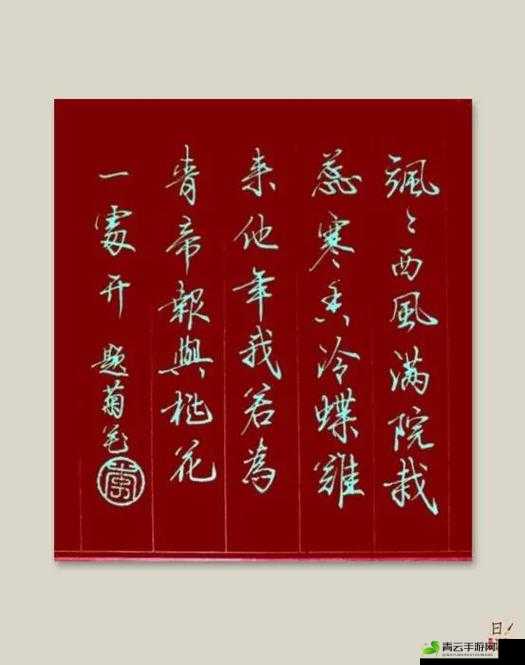 飒〻西風满院栽
蕊寒香冷蝶難
来他年我若為
青帝報與桃花
一處开 题菊花
日！
青云手游网